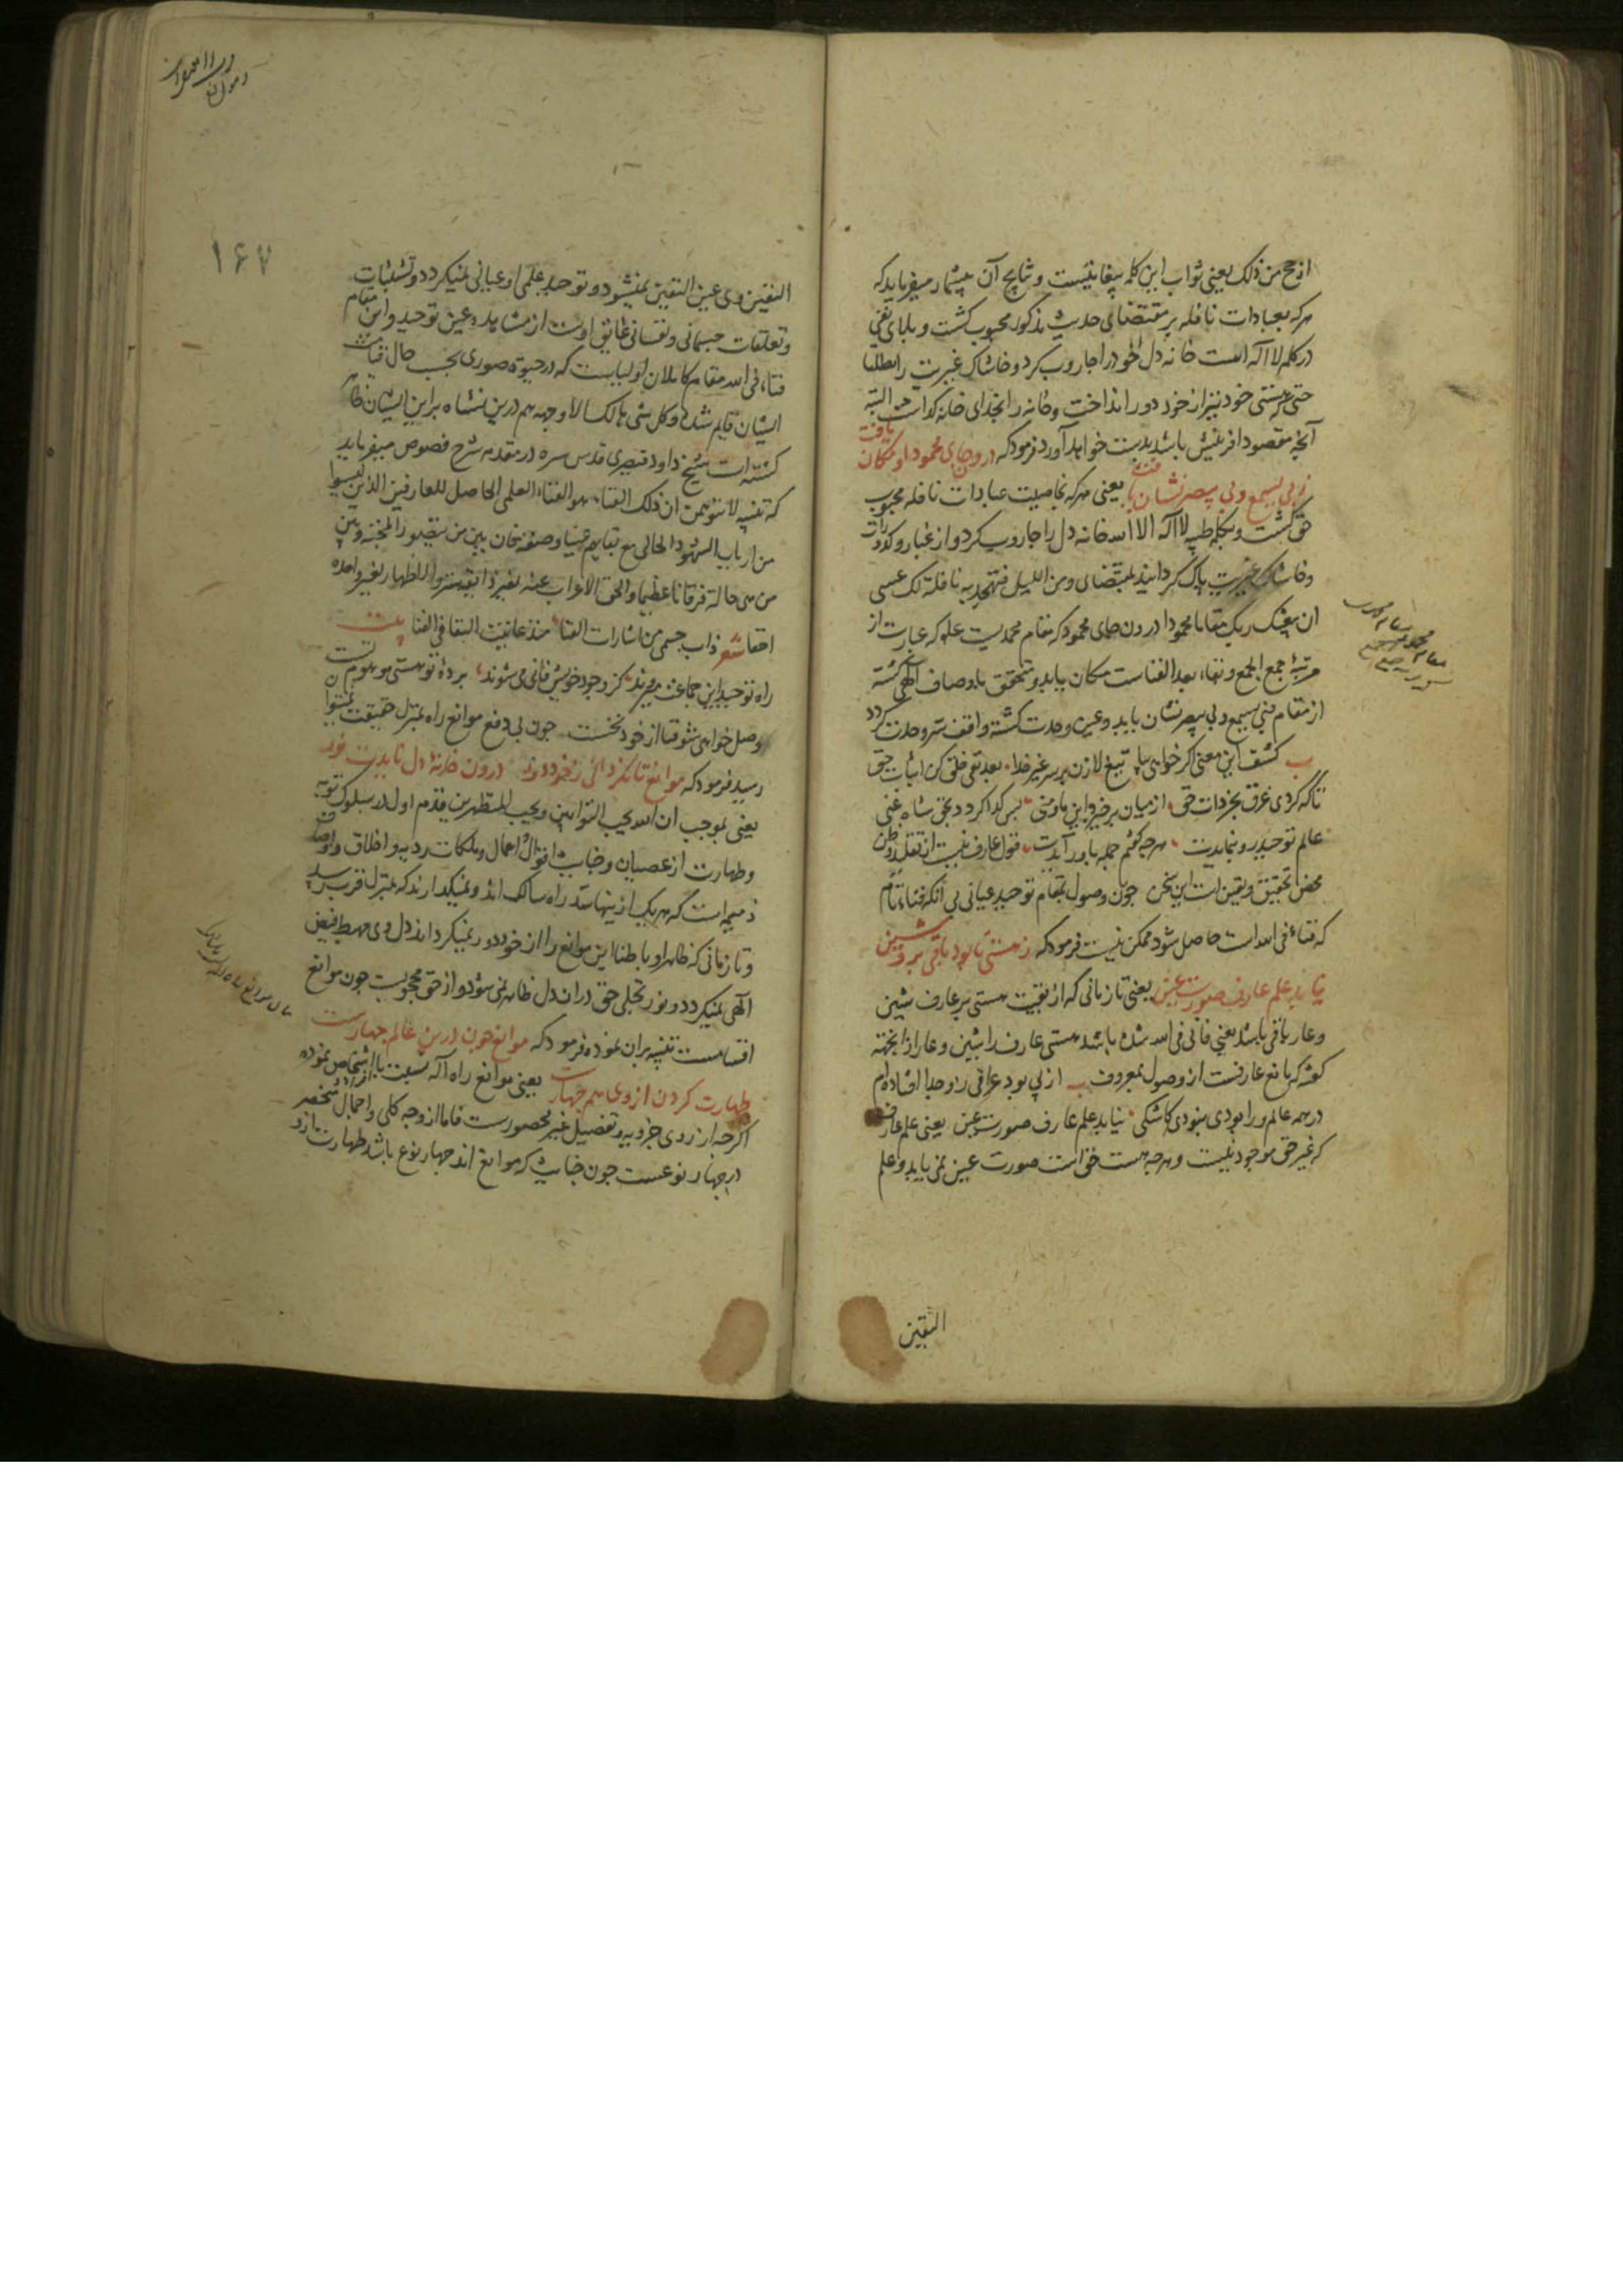 ارجح من ذلک یعنی ثواب این کلمه بیغایتست و نتایج آن بیشمار میفرماید که
هرکه بعبادات نافله بر مقتضای حدیث مذکور محبوب کشت و بلای نفی
در کلمه لا اله است خانه دل خود را جاروب کرد و خاشاک غیریت را مطلقا
حتی که هستی خود نیز از خود دور انداخت و خانه را بخدای خانه کذاشت البته
آنچه مقصود افرینش باشد بدست خواهد آورد فرمود که درون جای محمود او مکان یافت
ز بی یسمع و بی یبصر نشان یافت یعنی هرکه بخاصیت عبادات نافله محبوب
حق کشت و بکلمه طیبه لا اله الا الله خانه دل را جاروب کرد و از غبار و کدورات
و خاشاک غیریت پاک کردانید بمقتضای ومن اللیل فتهجد به نافلة لک عسی
ان یبعثک ربک مقاما محمودا درون جای محمود که مقام محمدیست علم که عبارت از
مرتبه جمع الجمع و بقاء بعد الفنا است مکان یابد و متحقق باوصاف الهی کشته
از مقام فبی یسمع و بی یبصر نشان یابد و عین وحدت کشته واقف سر وحدت کردد
ب کشف این معنی اکر خواهی بیا تیغ لا زن بر سر غیر خدا بعد نفی خلق کن اثبات حق
تا که کردی غرق بحر ذات حق از میان برخیزد این ما و منی پس کدا کردد بحق شاه غنی
عالم توحید رو بنمایدت هرچه کفتم جمله باور آیدت قول عارف نیست از تقلید و ظن
محض تحقیق و یقین است این سخن چون وصول بمقام توحید عیانی بی آنکه فناء تام
که فناء فی الله است حاصل شود ممکن نیست فرمود که ز هستی تا بود باقی برو شین
نیابد علم عارف صورت عین یعنی تا زمانی که از بقیت هستی بر عارف شین
و عار باقی باشد یعنی فانی فی الله نشده باشد هستی عارف را شین و عار از انجهته
کفته که مانع عارفست از وصول بمعروف ب از پی بود عراقی ز او جدا افتاده ام
در همه عالم ورا بودی نبودی کاشکی نیابد علم عارف صورت عین یعنی علم عارف
که غیر حق موجود نیست و هرچه هست حق است صورت عین نمی یابد و علم
الیقین
مقام محمود
۱۶۷
الیقین وی عین الیقین نمیشود و توحید علمی او عیانی نمیکردد و تشبثات
و تعلقات جسمانی و نفسانی عایق اوست از مشاهده عین توحید و این مقام
فناء فی الله مقام کاملان اولیاست که در حیوة صوری بحسب حال قیامت
ایشان قایم شده و کل شی هالک الا وجهه هم درین نشاه بر این ایشان ظاهر
کشته است شیخ داود قیصری قدس سره در مقدمه شرح فصوص میفرماید
که تنبیه لا تتوهمن ان ذلک الفناء هو الفناء العلمی الحاصل للعارفین الذین لیسوا
من ارباب الشهود الحالی مع بقایهم عینا وصفة فان بین من یتصور المحبة وبین
من هی حاله فرقانا عظیما والحق الاعراب عنه لغیر ذایقه ستر والاظهار لغیر واجده
اخفا شعر ذاب جسمی من اشارات الفنا منذ عاینت البقا فی الفنا بیت
راه توحید این جماعت میروند کز وجود خویش فانی می شوند پرده تو هستی موهوم تست
وصل خواهی شو فنا از خود نخست چون بی دفع موانع راه بمنزل حقیقت نمیتوان
رسید فرمود که موانع تا نکردانی ز خود دور درون خانه دل نایدت نور
یعنی بموجب ان الله یحب التوابین ویحب المتطهرین قدم اول در سلوک توبه
و طهارت از عصیان و خباثت اقوال اعمال و ملکات ردیه و اخلاق و اوصاف
ذمیمه است که هریک ازینها سد راه سالک اند و نمیکذارند که بمنزل قرب رسد
و تا زمانی که ظاهر او باطنا این موانع را از خود دور نمیکرداند دل وی مهبط فیض
الهی نمیکردد و نور تجلی حق دران دل ظاهر نمی شود و از حق محجوبست چون موانع
اقسامست تنبیه بران نموده فرمود که موانع چون درین عالم چهارست
طهارت کردن از وی هم چهارست یعنی موانع راه اله نسبت با اشخاص نموده
اکرچه از روی جزویه و تفصیل غیر محصورست فاما از وجه کلی و اجمال منحصر
در چهار نوعست چون خباثت که موانع اند چهار نوع باشد طهارت ازو